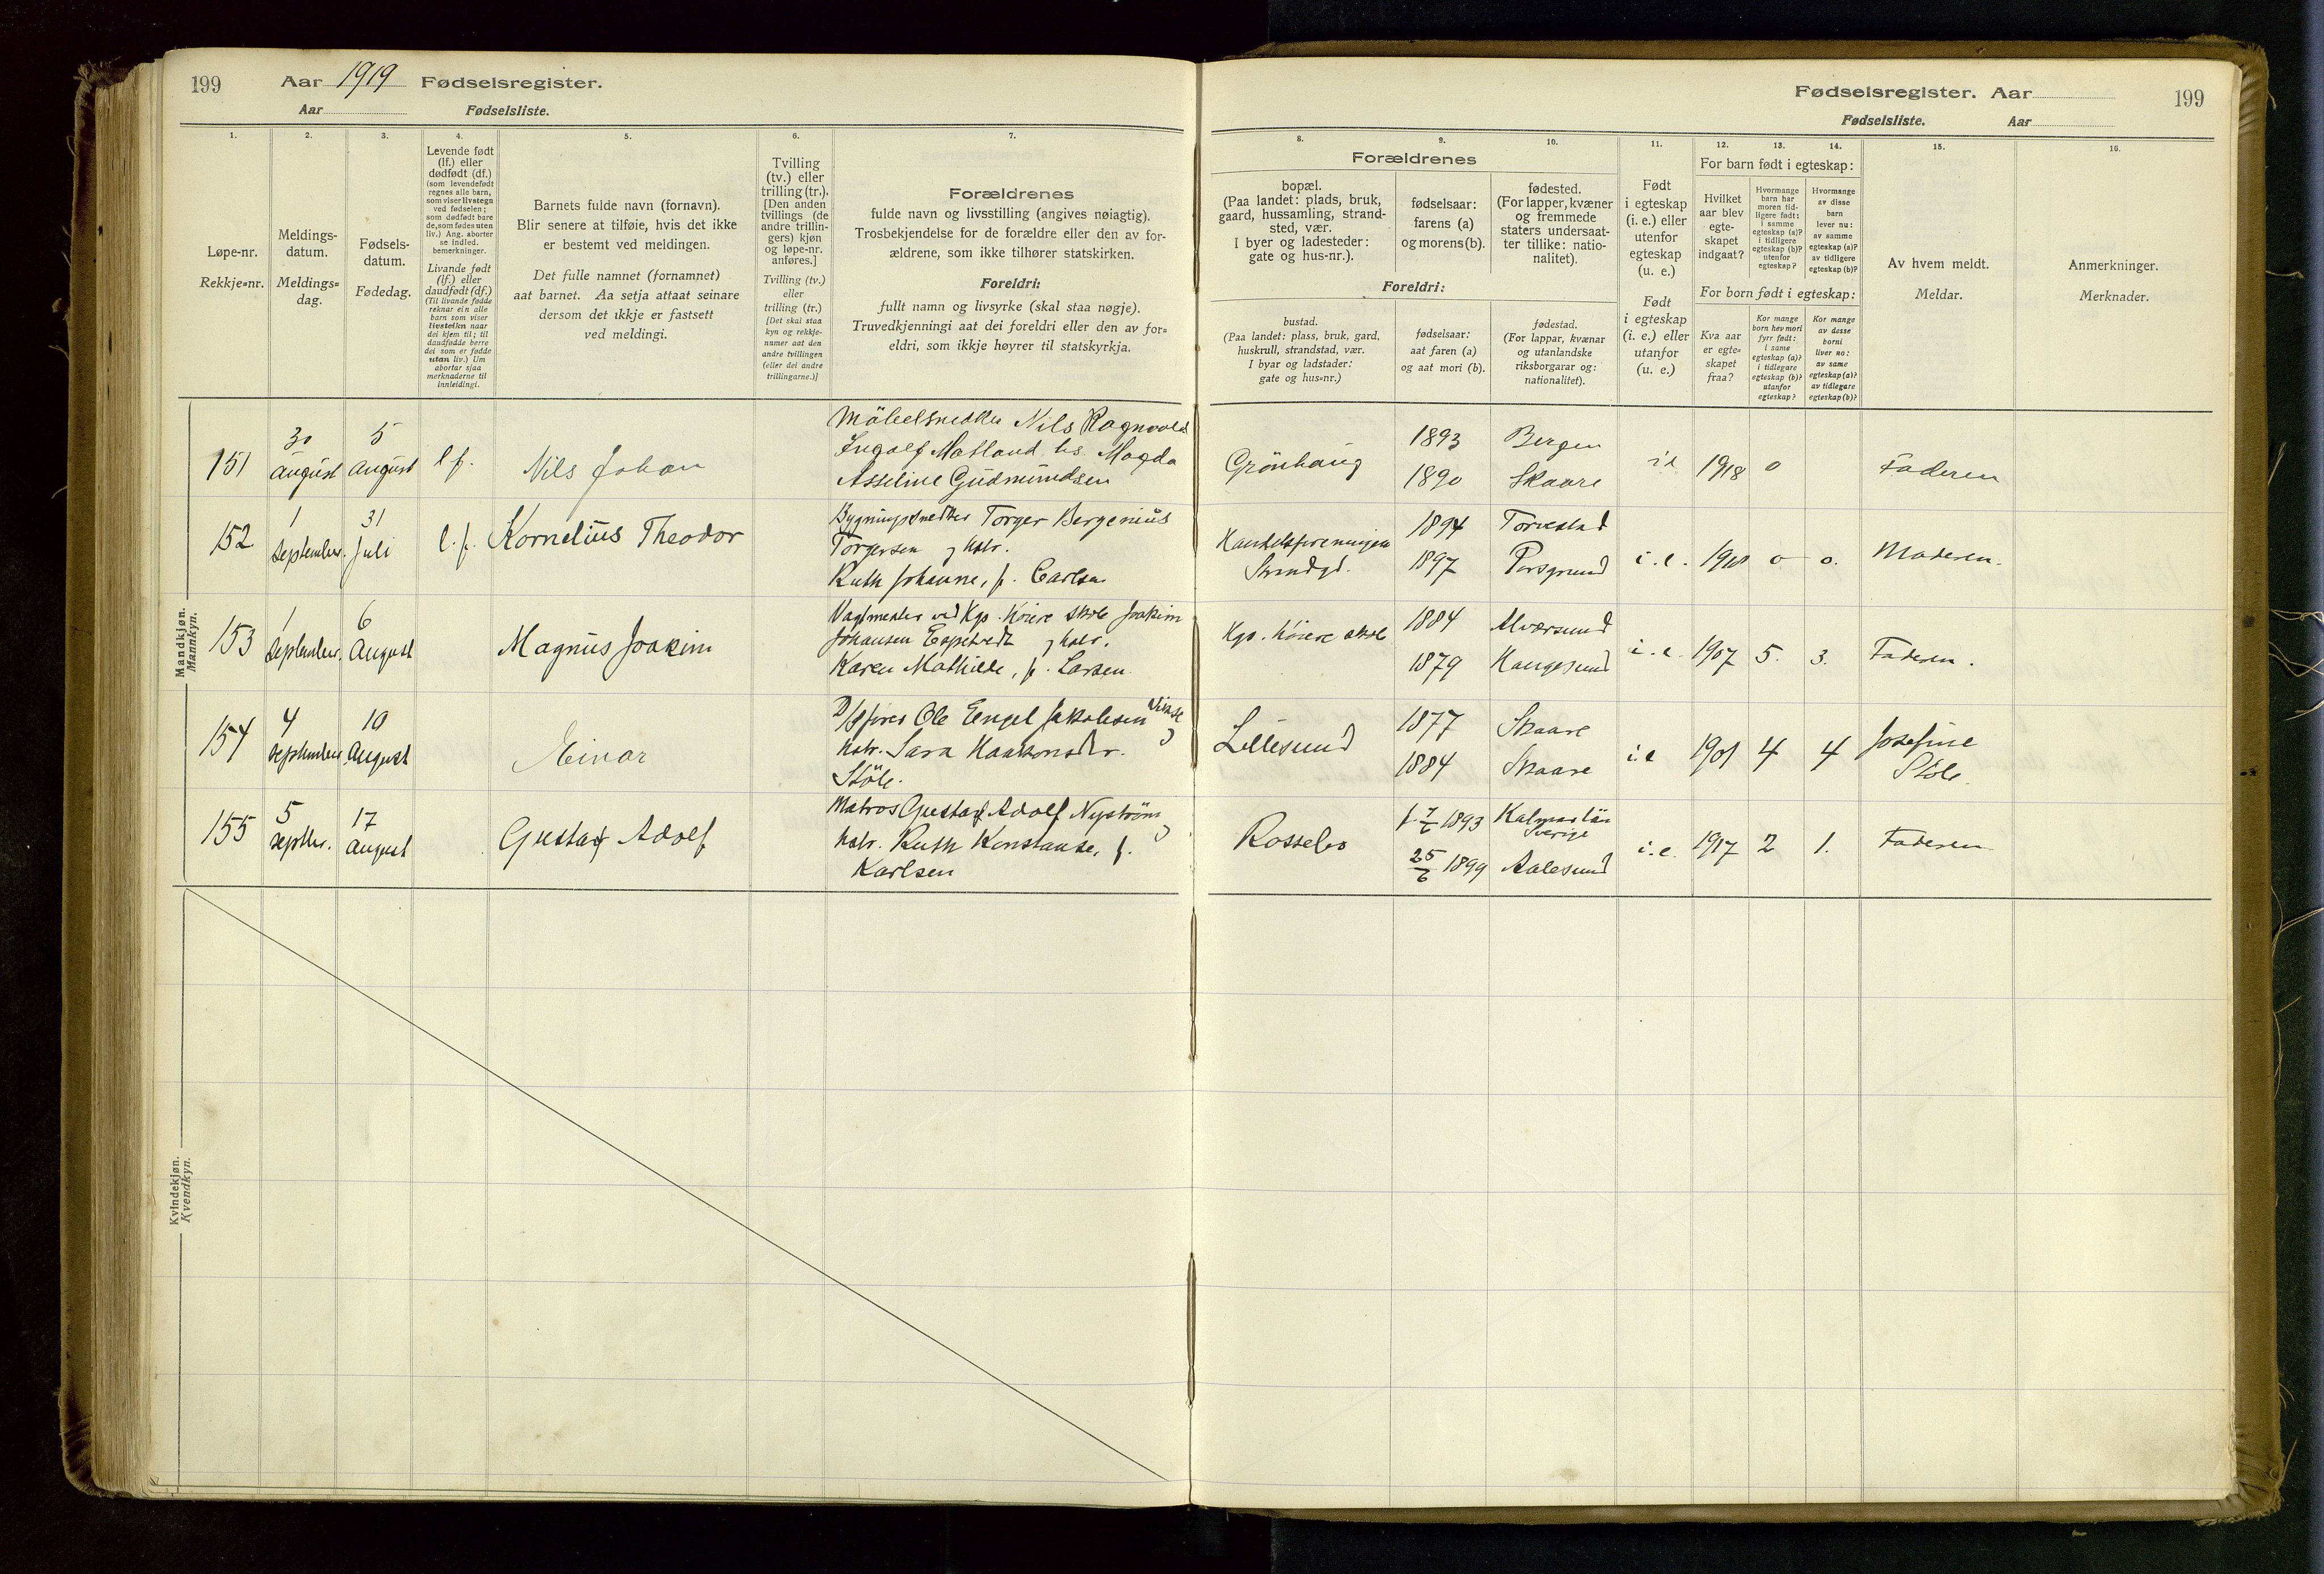 199
Aar 1919 Fødselsregister.
Aar Fødselsliste.
1. 2. 3. 4. 5. 6. 7.
Løpe-nr.
Rekkje=nr.
Meldings-
datum.
Meldings=
dag.
Fødsels-
datum.
Fødedag.
Levende født
(lf.) eller
dødfødt (df.)
(som levendefødt
regnes alle barn,
som viser livstegn
ved fødselen;
som dødfødt bare
de, som fødes uten
liv.) Ang. aborter
se indled.
bemerkninger.
Livande født
(lf.) eller
daudfødt (df.)
(Til livande fødde
reknar ein alle
barn som viser
livsteikn naar
dei kjem til; til
daudfødde berre
dei som er fødde
utan liv.) Um
abortar sjaa
merknaderne til
innleidingi.
Barnets fulde navn (fornavn).
Blir senere at tilføie, hvis det ikke
er bestemt ved meldingen.
Det fulle namnet (fornamnet)
aat barnet. Aa setja attaat seinare
dersom det ikkje er fastsett
ved meldingi.
Tvilling
(tv.) eller
trilling (tr.).
[Den anden
tvillings (de
andre trillin-
gers) kjøn
og løpe-nr.
anføres.]
Tvilling (tv.)
eller
trilling (tr.)
[Det skal staa
kyn og rekkje-
numer aat den
andre tvillingen
(eller dei andre
trillingarne.)]
Forældrenes
fulde navn og livsstilling (angives nøiagtig).
Trosbekjendelse for de forældre eller den av for-
ældrene, som ikke tilhører statskirken.
Foreldri:
fullt namn og livsyrke (skal staa nøgje).
Truvedkjenningi aat dei foreldri eller den av for=
eldri, som ikkje høyrer til statskyrkja.
Mandkjøn.
Mannkyn.
151 30 august 5 august l f. Nils Johan
Möbelsnedker Nils Ragnvald
Ingolf Matland hs Magda
Asseline Gudmundsen
152 1 September. 31 Juli l. f. Kornelius Theodor
Bygningssnedker Torger Bergenius
Torgersen og hstr.
Ruth Johanne, f. Carlsen
153 1 September. 6 August Magnus Joakim
Vagtmester ved Kgs. høiere skole Joakim
Johansen Espetvedt og hstr.
Karen Mathilde, f. Larsen
154 4 September 10 August Einar
Ole Engel Jakobsen Vikse
hstr. Sara Haakonsdtr.
Støle.
155 5 Septbr. 17 August Gustaf Adolf
Matros Gustaf Adolf Nyström
hstr. Ruth Konstanse, f.
Karlsen
Kvindekjøn.
Kvendkyn.
Fødselsregister. Aar
Fødselsliste. Aar
199
8. 9. 10. 11. 12. 13. 14. 15. 16.
Forældrenes
bopæl.
(Paa landet: plads, bruk,
gaard, hussamling, strand-
sted, vær.
I byer og ladesteder:
gate og hus-nr.).
fødselsaar:
farens (a)
og morens (b).
fødested.
(For lapper, kvæner
og fremmede
staters undersaat-
ter tillike: natio-
nalitet).
Foreldri:
bustad.
(Paa landet: plass, bruk, gard,
huskrull, strandstad, vær.
I byar og ladstader:
gate og hus=nr.)
fødselsaar:
aat faren (a)
og aat mori (b).
fødestad.
(For lappar, kvænar
og utanlandske
riksborgarar og:
nationalitet).
Født
i egteskap
(i. e.) eller
utenfor
egteskap
(u. e.)
Født
i egteskap
(i. e.) eller
utanfor
(u. e.)
For barn født i egteskap:
Hvilket
aar blev
egte-
skapet
indgaat?
Hvormange
barn har
moren tid-
ligere født:
i samme
egteskap (a)?
i tidligere
egteskap (b)?
utenfor
egteskap?
Hvormange
av disse
barn
lever nu:
av samme
egteskap (a)?
av tidligere
egteskap (b)?
For born født i egteskap:
Kva aar
er egte=
skapet
fraa?
Kor mange
born hev mori
fyrr født:
i same
egteskap (a)?
i tidlegare
egteskap (b)?
utanfor
egteskap?
Kor mange
av desse
borni
liver no:
av same
egteskap (a)?
av tidlegare
egteskap (b)?
Av hvem meldt.
Meldar.
Anmerkninger.
Merknader.
Grönhaug 1893 Bergen
1890 Skaare i e 1918 0 Faderen
Handelsforeningen 1894 Torvestad
Strandgt. 1897 Porsgrund i. e. 1918 0 0. Moderen.
Kgs. høiere skole 1884 Alversund
1879 Haugesund i. e. 1907 5. 3. Faderen.
Lillesund 1877 Skaare
1884 Skaare i. e 1901 4 4 Josefine
Støle.
Rossebo 1893 Kalmar län
Sverige
25/6 1899 Aalesund i. e. 1917 2 1. Faderen